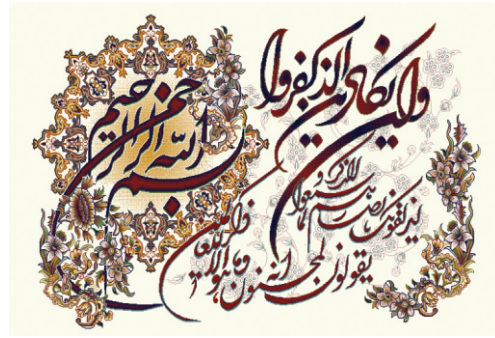 بسم الله الرحمن الرحيم
وان يكاد الذين كفروا
ليزلقونك بابصارهم لما سمعوا الذكر و
يقولون انه لمجنون وما هو الا ذكر للعالمين